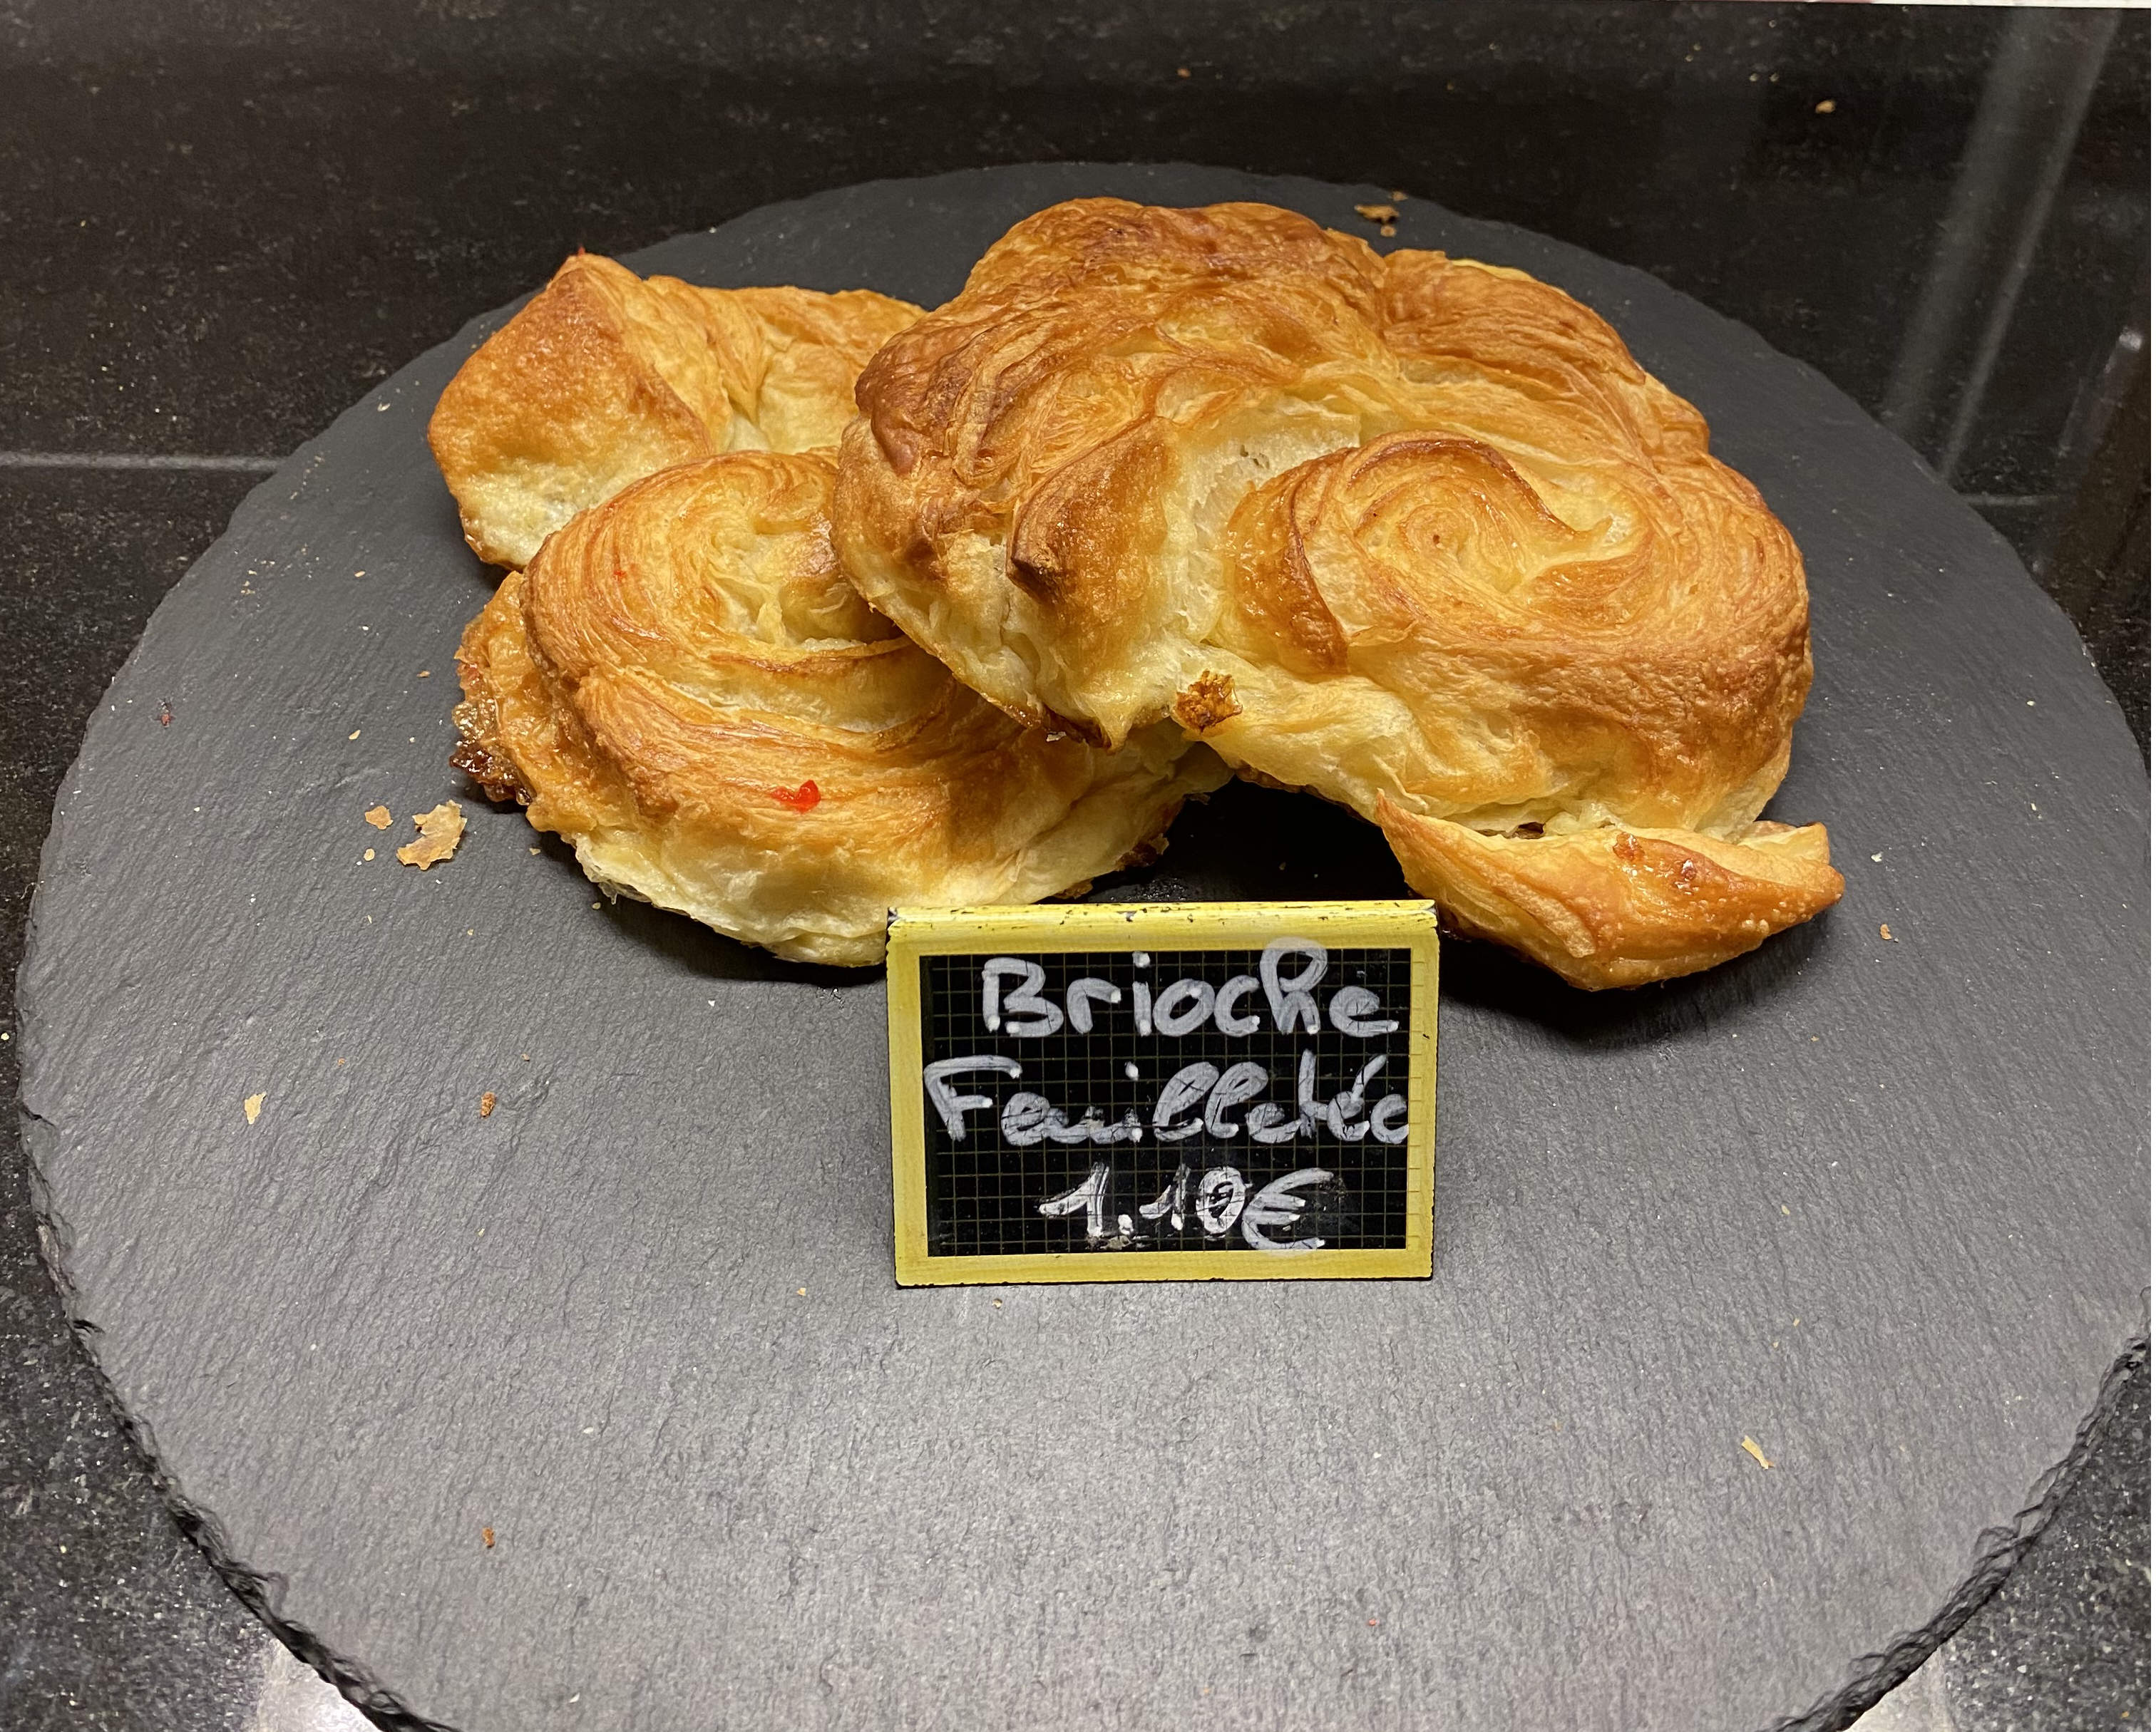 Brioche
Feuilletée
1.10€